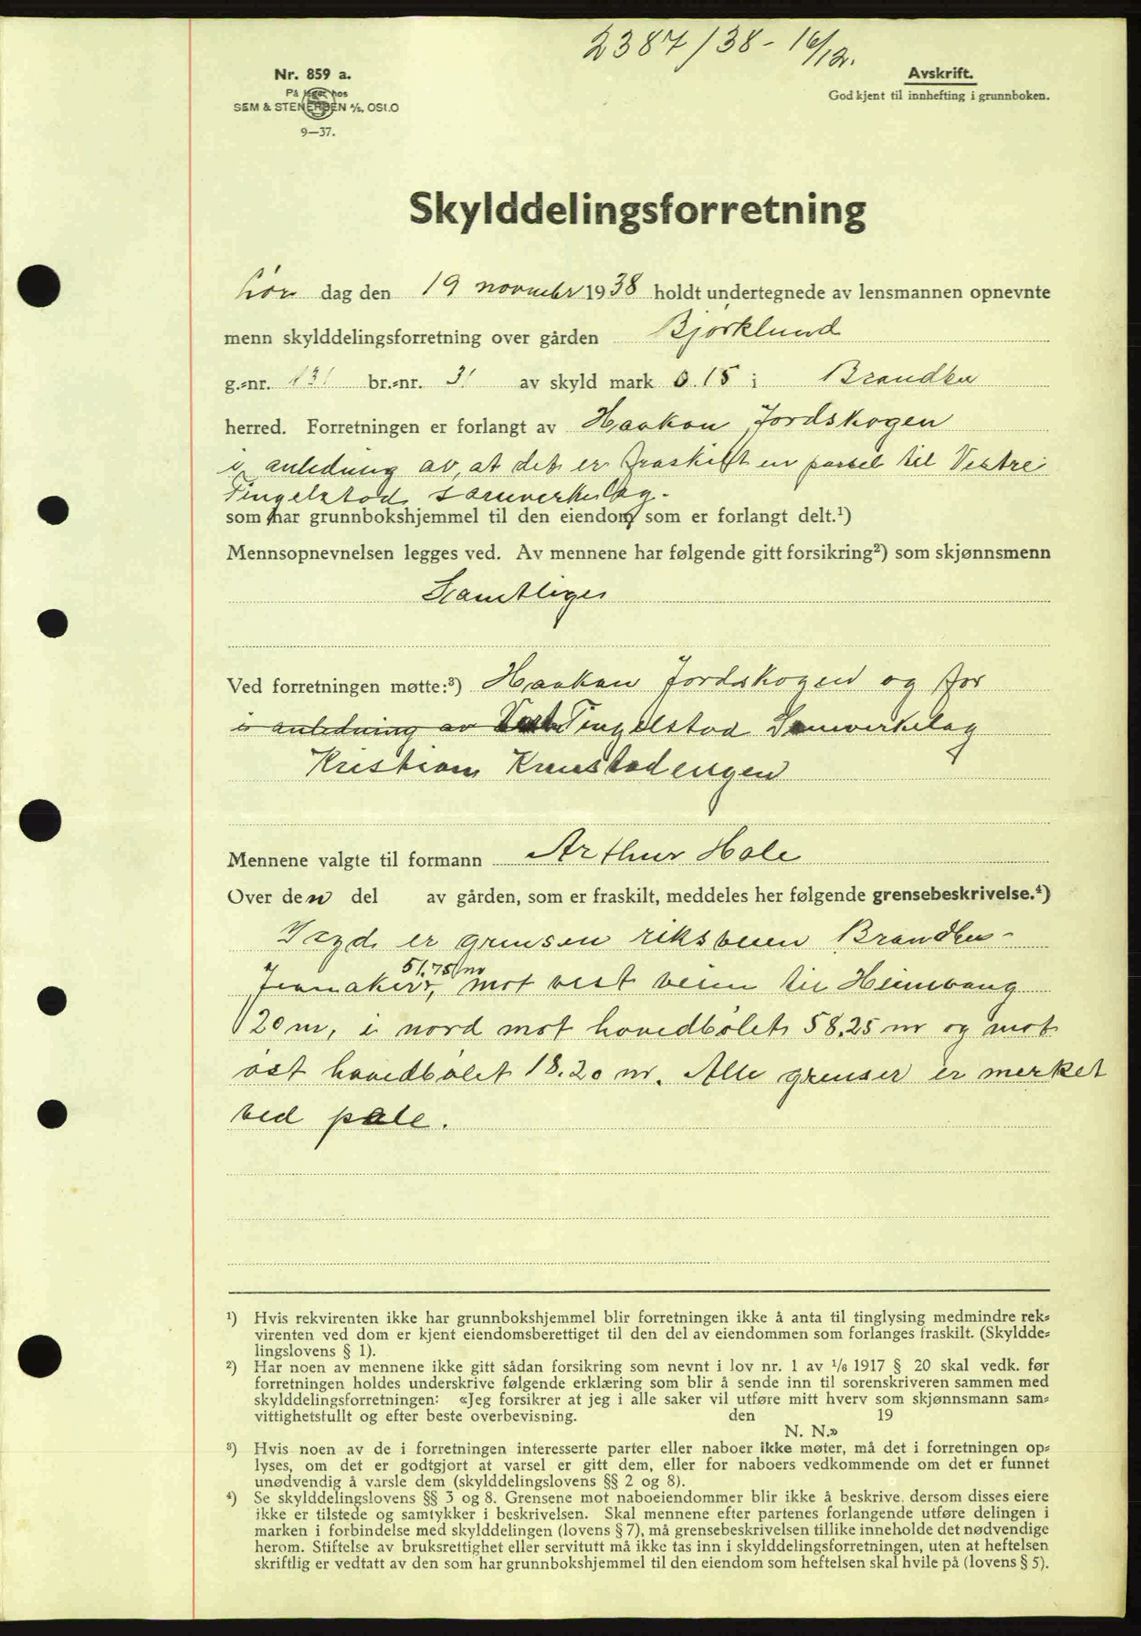 2387/38 - 16/12.
Nr. 859 a.
På lager hos
SEM & STENERSEN A/S, OSLO
9—37.
Avskrift.
Godkjent til innhefting i grunnboken.
Skylddelingsforretning
Lør dag den 19 november 1938 holdt undertegnede av lensmannen opnevnte
menn skylddelingsforretning over gården Bjørklund
g.-nr. 131 br.-nr. 31 av skyld mark 0.15 i Brandbu
herred. Forretningen er forlangt av Haakon Jordskogen
i anledning av, at det er fraskilt en parsel til Vestre
Tingelstad samverkelag.
som har grunnbokshjemmel til den eiendom som er forlangt delt.¹)
Mennsopnevnelsen legges ved. Av mennene har følgende gitt forsikring²) som skjønnsmenn
Samtlige
Ved forretningen møtte:³) Haakon Jordskogen og for
i anledning av Vest Tingelstad Samverkelag
Kristian
Mennene valgte til formann Arthur Hole
Over den del av gården, som er fraskilt, meddeles her følgende grensebeskrivelse.⁴)
I syd er grensen riksveien Brandbu-
Jevnaker, 51,75 m mot vest veien til Heimvang
20 m, i nord mot hovedbølet 58.25 m og mot
øst hovedbølet 18.20 m. Alle grenser er merket
ved pæle.
¹) Hvis rekvirenten ikke har grunnbokshjemmel blir forretningen ikke å anta til tinglysing medmindre rek-
virenten ved dom er kjent eiendomsberettiget til den del av eiendommen som forlanges fraskilt. (Skyldde-
lingslovens § 1).
²) Har noen av mennene ikke gitt sådan forsikring som nevnt i lov nr. 1 av 1/6 1917 § 20 skal vedk. før
forretningen holdes underskrive følgende erklæring som blir å sende inn til sorenskriveren sammen med
skylddelingsforretningen: «Jeg forsikrer at jeg i alle saker vil utføre mitt hverv som skjønnsmann sam-
vittighetsfullt og efter beste overbevisning. den 19
N. N.»
³) Hvis noen av de i forretningen interesserte parter eller naboer ikke møter, må det i forretningen op-
lyses, om det er godtgjort at varsel er gitt dem, eller for naboers vedkommende om det er funnet
unødvendig å varsle dem (skylddelingslovens §§ 2 og 8).
⁴) Se skylddelingslovens §§ 3 og 8. Grensene mot naboeiendommer blir ikke å beskrive, dersom disses eiere
ikke er tilstede og samtykker i beskrivelsen. Skal mennene efter partenes forlangende utføre delingen i
marken i forbindelse med skylddelingen (lovens § 7), må grensebeskrivelsen tillike inneholde det nødvendige
herom. Stiftelse av bruksrettighet eller servitutt må ikke tas inn i skylddelingsforretningen, uten at heftelsen
skriftlig er vedtatt av den som har grunnbokshjemmel til den eiendom som heftelsen skal hvile på (lovens § 5).